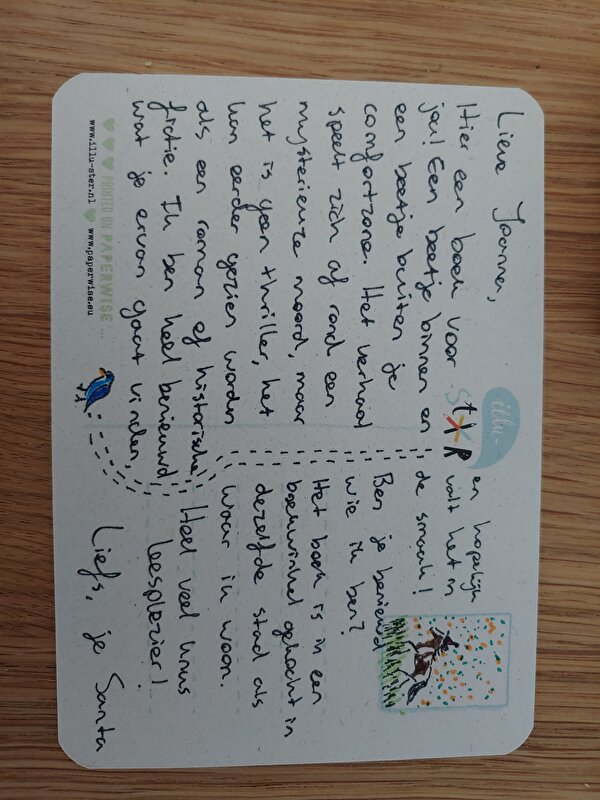 Lieve Joanna,
Hier een boek voor
jou! Een beetje binnen en
een beetje buiten je
comfortzone. Het verhaal
speelt zich af rond een
mysterieuze moord, maar
het is geen thriller, het
kan eerder gezien worden
als een roman of historische
fictie. Ik ben heel benieuwd
wat je ervan gaat vinden,
illu-
stXR
en hopelijk
valt het in
de smaak!
Ben je benieuwd
wie ik ben?
Het boek is in een
boekwinkel gekocht in
dezelfde stad als
waar ik woon.
Heel veel
leesplezier!
Liefs, je Santa
PRINTED ON PAPERWISE ...
www.illu-ster.nl
www.paperwise.eu